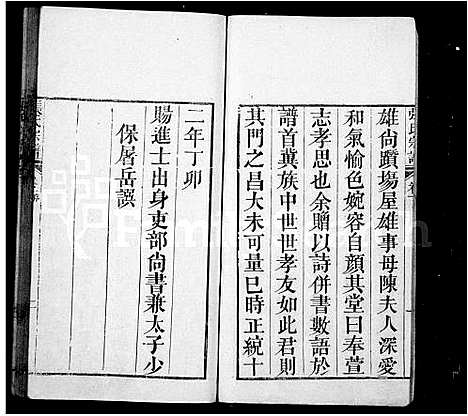 雄尙躓場屋雄事母陳夫人深愛
和氣愉色婉容自顏其堂曰奉萱
志孝思也余贈以詩併書數語於
譜首冀族中世世孝友如此君則
其門之昌大未可量巳時正統十
二年丁卯
賜進士出身吏部尙書兼太子少
保屠岳譔